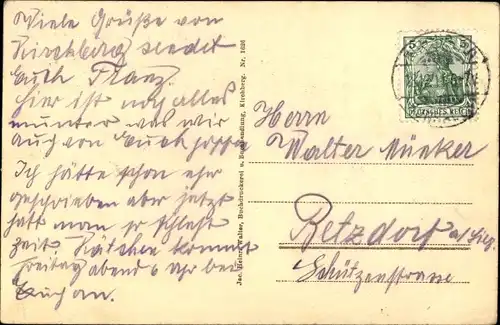 Viele Grüße von
Kirchberg sendet
Euch Franz.
hier ist noch alles
munter was wir
auch von Euch hoffen
Ich hätte schon eher
geschrieben aber jetzt
hatt man so schlest
zeit. Kätchen kommt
Freitag abend 6 Uhr bei
Euch an.
Buchdruckerei u. Buchhandlung, Kirchberg. Nr. 1626
DEUTSCHES REICH
Herrn
Walter Münker
Betzdorf a/Sieg.
Schützenstrasse